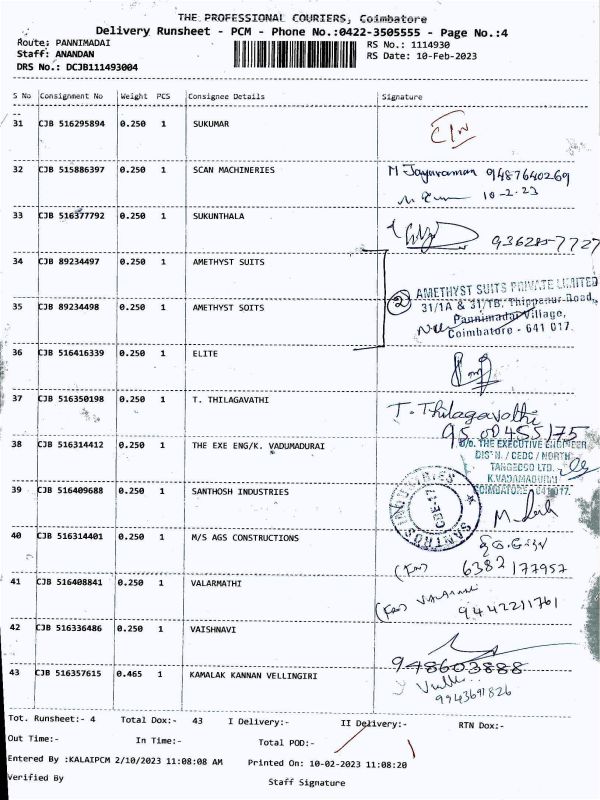 THE PROFESSIONAL COURIERS, Coimbatore
Delivery Runsheet - PCM - Phone No.:0422-3505555 - Page No.:4
Route: PANNIMADAI RS No.: 1114930
Staff: ANANDAN RS Date: 10-Feb-2023
DRS No.: DCJB111493004
S No Consignment No Weight PCS Consignee Details Signature
31 CJB 516295894 0.250 1 SUKUMAR
32 CJB 515886397 0.250 1 SCAN MACHINERIES M Jayaraman 9487640269
10-2-23
33 CJB 516377792 0.250 1 SUKUNTHALA
34 CJB 89234497 0.250 1 AMETHYST SUITS
2 AMETHYST SUITS PRIVATE LIMITED
31/1A & 31/1B, Thippanur Road,
35 CJB 89234498 0.250 1 AMETHYST SOITS
Pannimadai Village,
Coimbatore - 641 017.
36 CJB 516416339 0.250 1 ELITE
37 CJB 516350198 0.250 1 T. THILAGAVATHI T. Thilagavathi
9500455175
38 CJB 516314412 0.250 1 THE EXE ENG/K. VADUMADURAI
O/o. THE EXECUTIVE ENGINEER
DISTN. / CEDC / NORTH
TANGEDCO LTD.
K.VADAMADURAI
COIMBATORE - 641 017.
39 CJB 516409688 0.250 1 SANTHOSH INDUSTRIES
SANTHOSH INDUSTRIES
CBE-17
40 CJB 516314401 0.250 1 M/S AGS CONSTRUCTIONS
6382177957
41 CJB 516408841 0.250 1 VALARMATHI
9442211761
42 CJB 516336486 0.250 1 VAISHNAVI
948603888
43 CJB 516357615 0.465 1 KAMALAK KANNAN VELLINGIRI
9943691826
Tot. Runsheet:- 4 Total Dox:- 43 I Delivery:- II Delivery:- RTN Dox:-
Out Time:- In Time:- Total POD:-
Entered By :KALAIPCM 2/10/2023 11:08:08 AM Printed On: 10-02-2023 11:08:20
Verified By Staff Signature